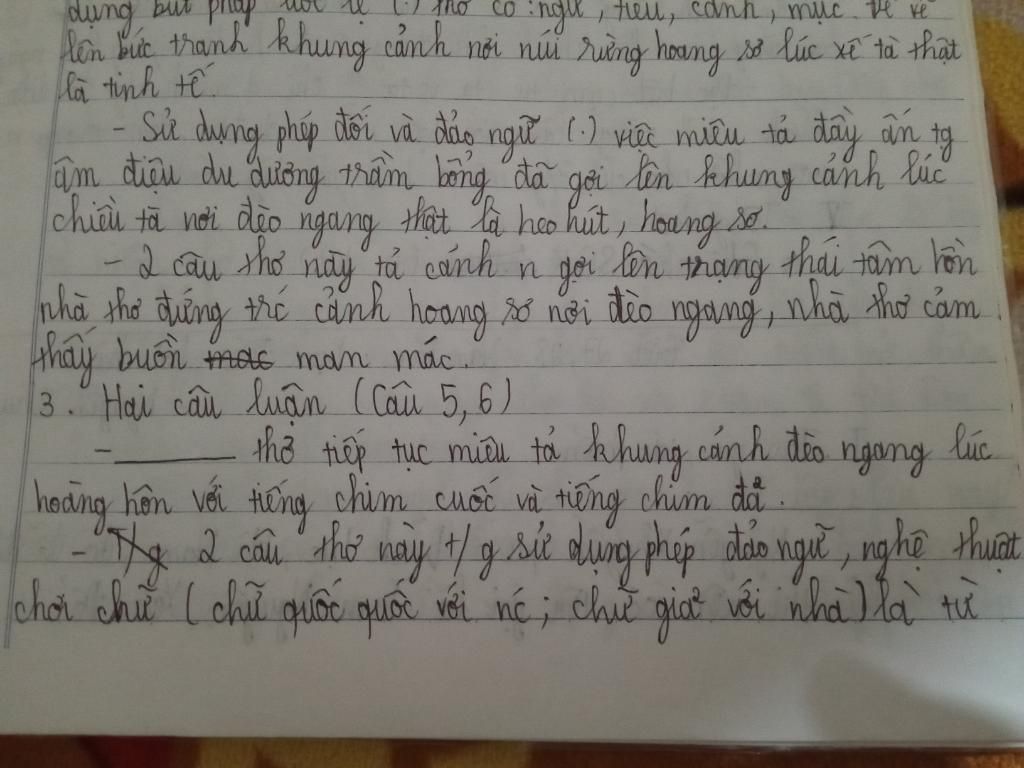 dụng bút pháp ước lệ (.) thơ cổ: ngư, tiều, canh, mục. để vẽ
lên bức tranh khung cảnh nơi núi rừng hoang sơ lúc xế tà thật
là tinh tế.
- Sử dụng phép đối và đảo ngữ (.) việc miêu tả đầy ấn tg
âm điệu du dương trầm bổng đã gợi lên khung cảnh lúc
chiều tà nơi đèo ngang thật là heo hút, hoang sơ.
- 2 câu thơ này tả cảnh n gợi lên trạng thái tâm hồn
nhà thơ đứng trc cảnh hoang sơ nơi đèo ngang, nhà thơ cảm
thấy buồn mac man mác.
3. Hai câu luận (Câu 5, 6)
- ______ thơ tiếp tục miêu tả khung cảnh đèo ngang lúc
hoàng hôn với tiếng chim cuốc và tiếng chim đa.
- T/g 2 câu thơ này t/g sử dụng phép đảo ngữ, nghệ thuật
chơi chữ (chữ quốc quốc với nc; chữ gia với nhà) là từ